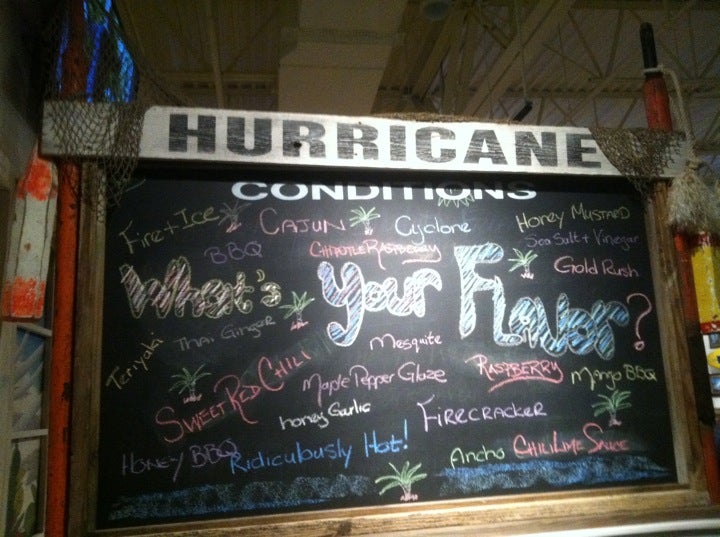 HURRICANE
CONDITIONS
Fire + Ice
CAJUN
Cyclone
HONEY MUSTARD
BBQ
CHIPOTLE RASPBERRY
SEA SALT + VINEGAR
Gold Rush
What's Your Flavor?
Teriyaki
THAI GINGER
MESQUITE
SWEET RED CHILI
MAPLE PEPPER GLAZE
RASPBERRY
MANGO BBQ
HONEY GARLIC
FIRECRACKER
HONEY BBQ
RIDICULOUSLY HOT!
ANCHO CHILI LIME SAUCE